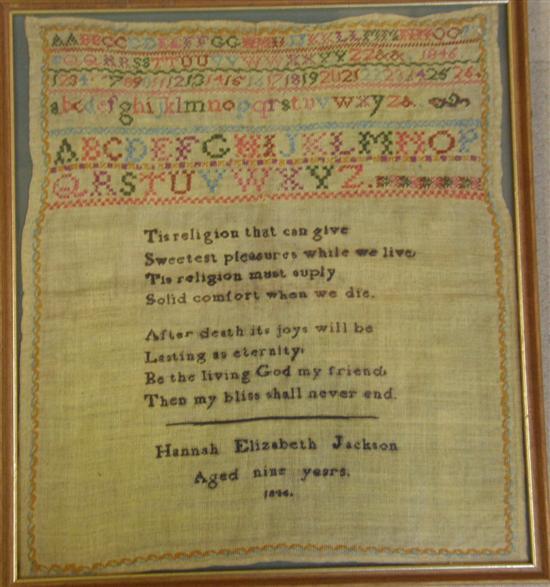 AABBCCCDDEEFFGGHHIIJJKKLLMMNNOOPP
QQRRSSTTUUVVWWXXYYZZ&& 1846
1234 789 11121314151617181920212223242526
abcdefghijklmnopqrstuvwxyz&
ABCDEFGHIJKLMNOP
QRSTUVWXYZ.
Tis religion that can give
Sweetest pleasures while we live,
Tis religion must suply
Solid comfort when we die.
After death its joys will be
Lasting as eternity,
Be the living God my friend,
Then my bliss shall never end.
Hannah Elizabeth Jackson
Aged nine years.
1846.